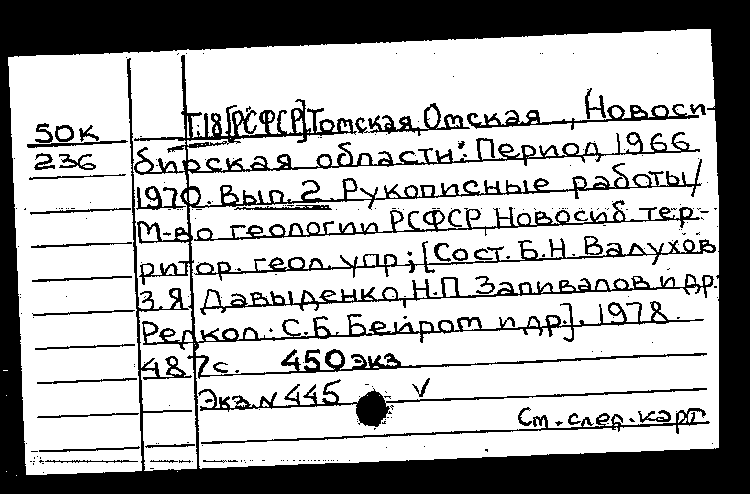 50К
Т.18[РСФСР]Томская, Омская, Новоси-
236 бирская области: Период 1966
1970. Вып. 2 Рукописные работы/
М-во геологии РСФСР, Новосиб. тер-
ритор. геол. упр; [Сост. Б.Н. Валухов
З.Я. Давыденко, Н.П. Запивалов и др.
Редкол.: С.Б. Бейром и др]. 1978.
487с. 450 экз
Экз. N 445 V
См. след. карт